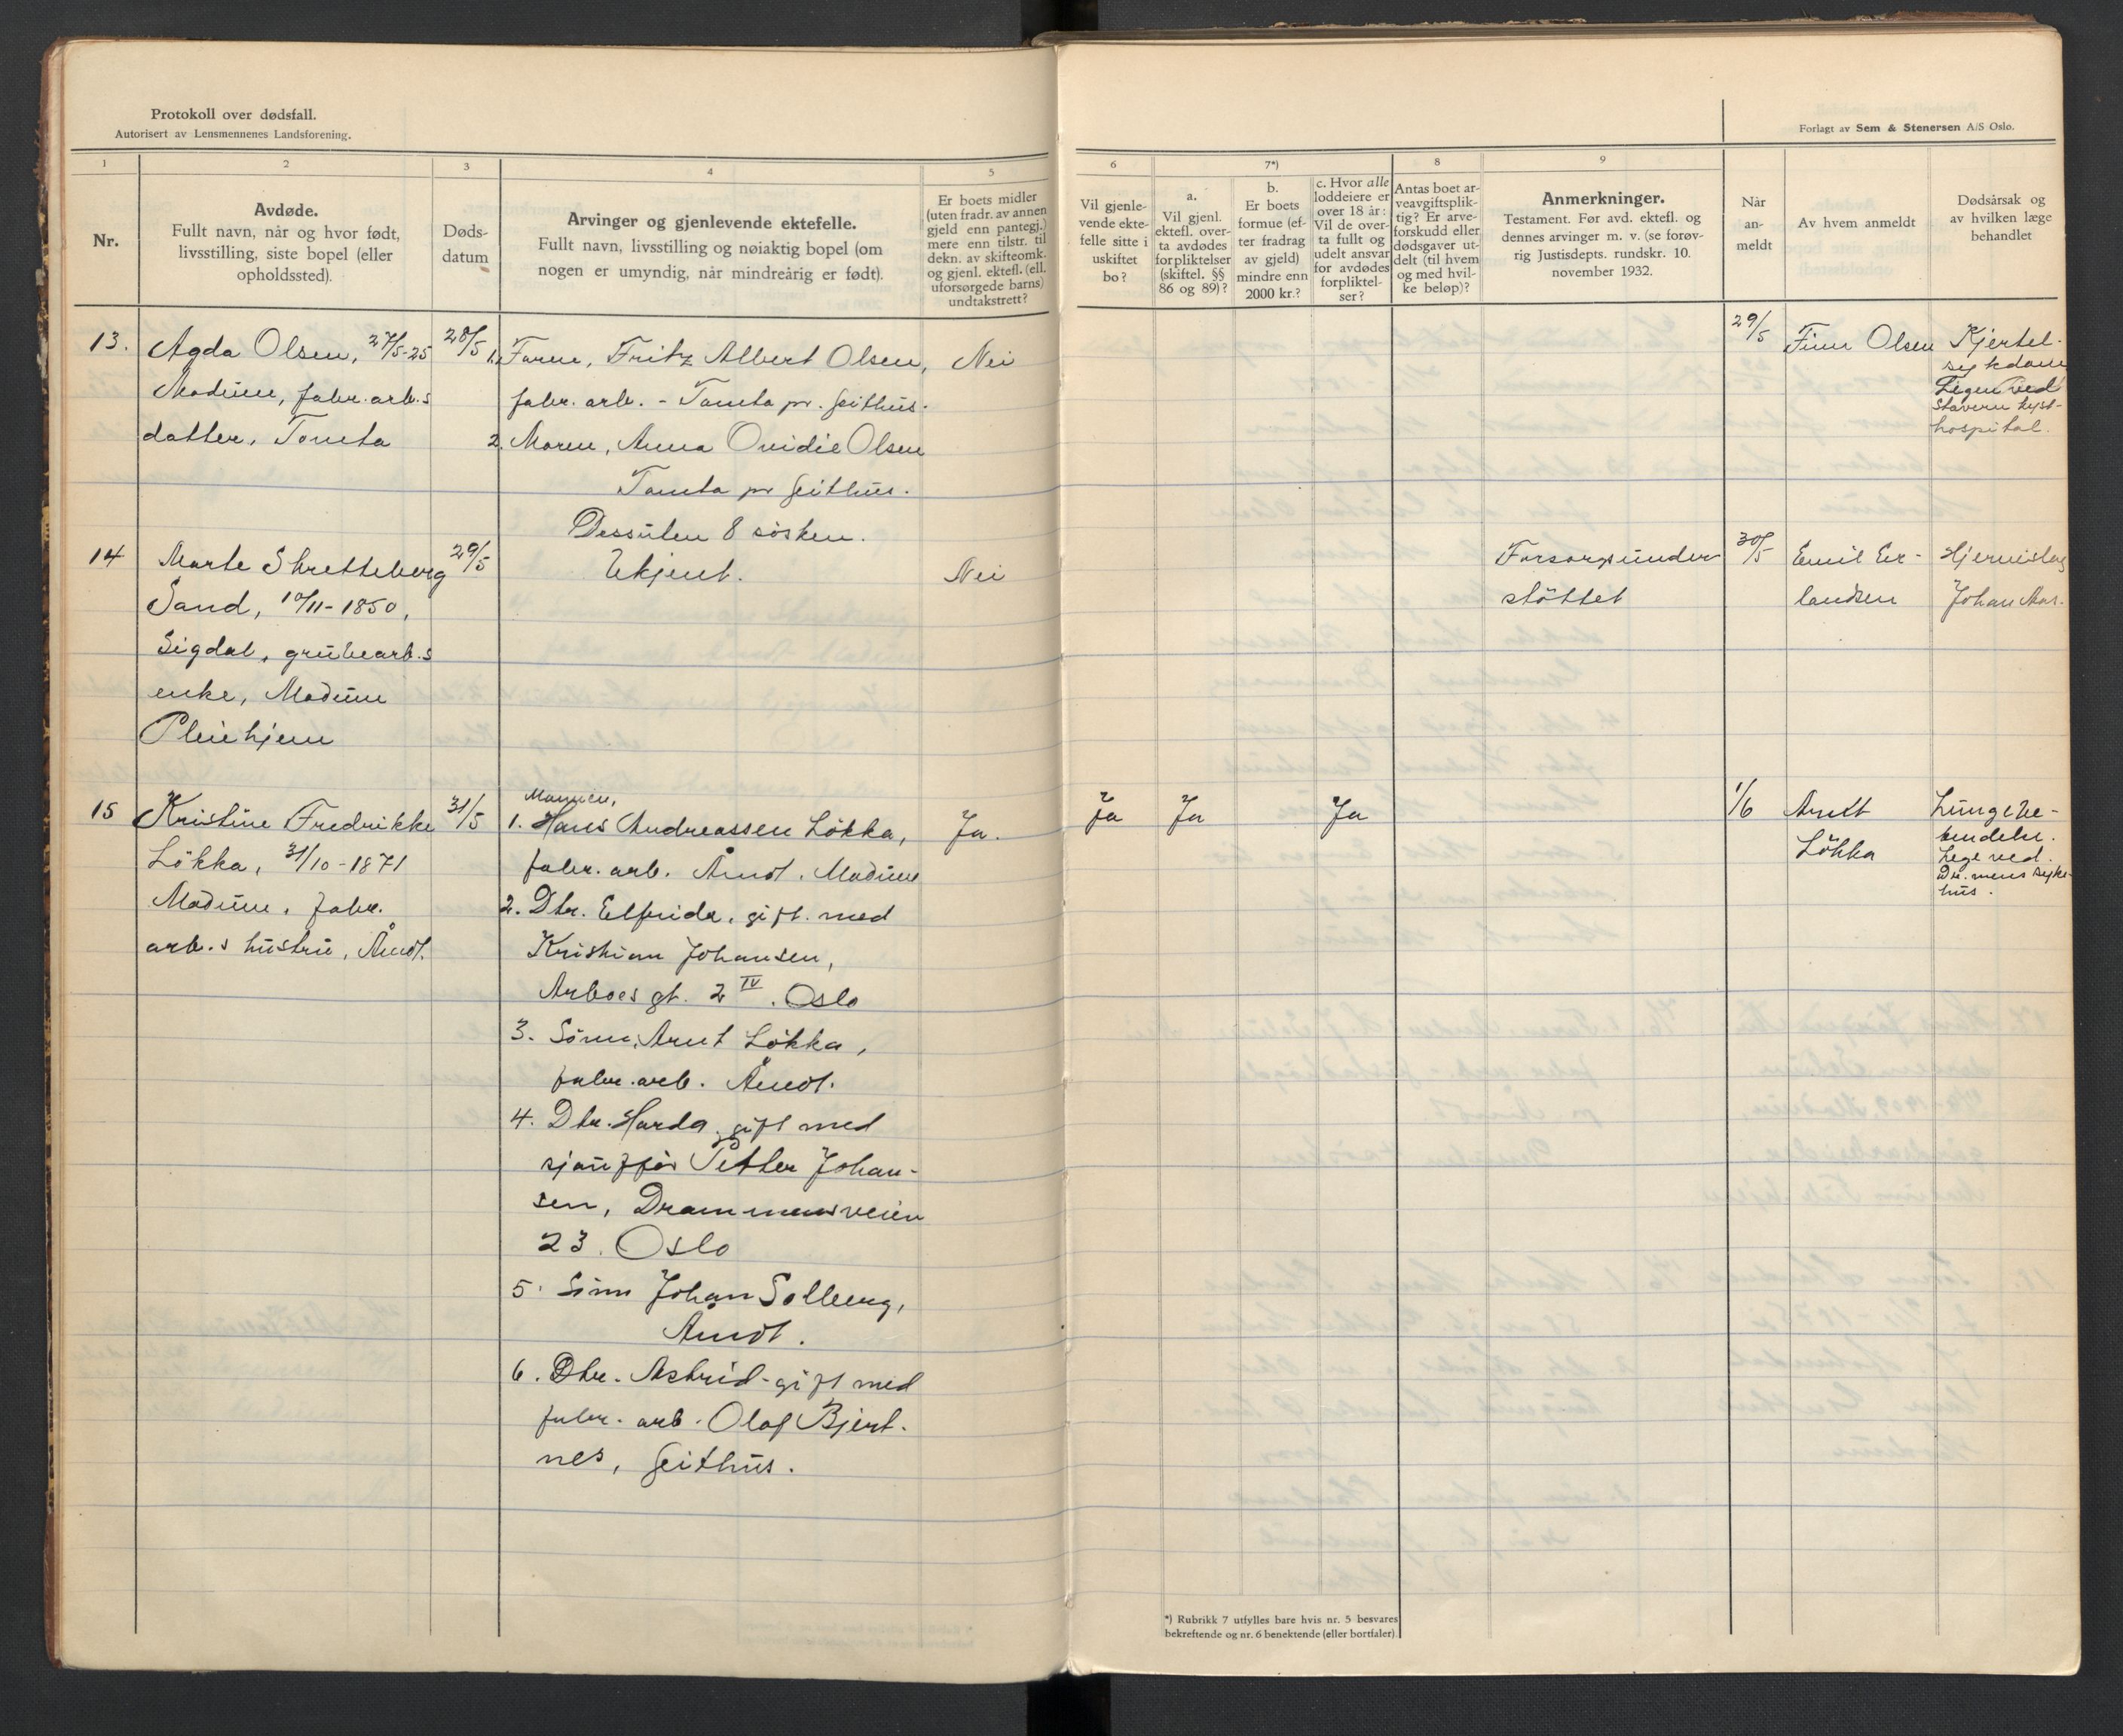 Protokoll over dødsfall.
Autorisert av Lensmennenes Landsforening.
Forlagt av Sem & Stenersen A/S Oslo.
1
2
3
4
5
6
7*)
8
9
Nr.
Avdøde.
Fullt navn, når og hvor født,
livsstilling, siste bopel (eller
opholdssted).
Døds-
datum
Arvinger og gjenlevende ektefelle.
Fullt navn, livsstilling og nøiaktig bopel (om
nogen er umyndig, når mindreårig er født).
Er boets midler
(uten fradr. av annen
gjeld enn pantegj.)
mere enn tilstr. til
dekn. av skifteomk.
og gjenl. ektefl. (ell.
uforsørgede barns)
undtakstrett?
Vil gjenle-
vende ekte-
felle sitte i
uskiftet
bo?
a.
Vil gjenl.
ektefl. over-
ta avdødes
forpliktelser
(skiftel. §§
86 og 89)?
b.
Er boets
formue (ef-
ter fradrag
av gjeld)
mindre enn
2000 kr.?
c. Hvor alle
loddeiere er
over 18 år:
Vil de over-
ta fullt og
udelt ansvar
for avdødes
forpliktel-
ser?
Antas boet ar-
veavgiftsplik-
tig? Er arve-
forskudd eller
dødsgaver ut-
delt (til hvem
og med hvil-
ke beløp)?
Anmerkninger.
Testament. Før avd. ektefl. og
dennes arvinger m. v. (se forøv-
rig Justisdepts. rundskr. 10.
november 1932.
Når
an-
meldt
Av hvem anmeldt
Dødsårsak og
av hvilken læge
behandlet
13.
Agda Olsen, 27/5-25
Modum, fabr. arb.s
datter, Tomta
28/5
1. Faren, Fritz Albert Olsen,
fabr. arb. - Tomta pr. Geithus.
2. Moren, Anna Ovidie Olsen
Tomta pr Geithus.
Dessuten 8 søsken.
Nei
29/5
Finn Olsen
Kjertel-
sykdom
Legen ved
Stavern kyst-
hospital.
14
Marte Skretteberg
Sand, 10/11-1850,
Sigdal, grubearb.s
enke, Modum
Pleiehjem
29/5
Ukjent.
Nei
Forsorgsunder-
støttet
30/5
Emil Er-
landsen
Hjerneslag
Johan Aar.
15
Kristine Fredrikke
Løkka, 31/10-1871
Modum, fabr.
arb.s hustru, Åmot.
31/5
Mannen,
1. Hans Andreassen Løkka,
fabr. arb. Åmot. Modum
2. Dtr. Elfrida, gift med
Kristian Johansen,
Arboes gt. 2 IV. Oslo
3. Sønn, Arnt Løkka,
fabr. arb. Åmot.
4. Dtr. Harda, gift med
sjauffør Petter Johan-
sen, Drammensveien
23. Oslo
5. Sønn Johan Solberg,
Åmot.
6. Dtr. Astrid - gift med
fabr. arb. Olaf Bjert-
nes, Geithus.
Ja.
Ja
Ja
Ja
1/6
Arnt
Løkka
Lungebe-
tendelse.
Lege ved
Dr.mens syke-
hus.
*) Rubrikk 7 utfylles bare hvis nr. 5 besvares
bekreftende og nr. 6 benektende (eller bortfaler).